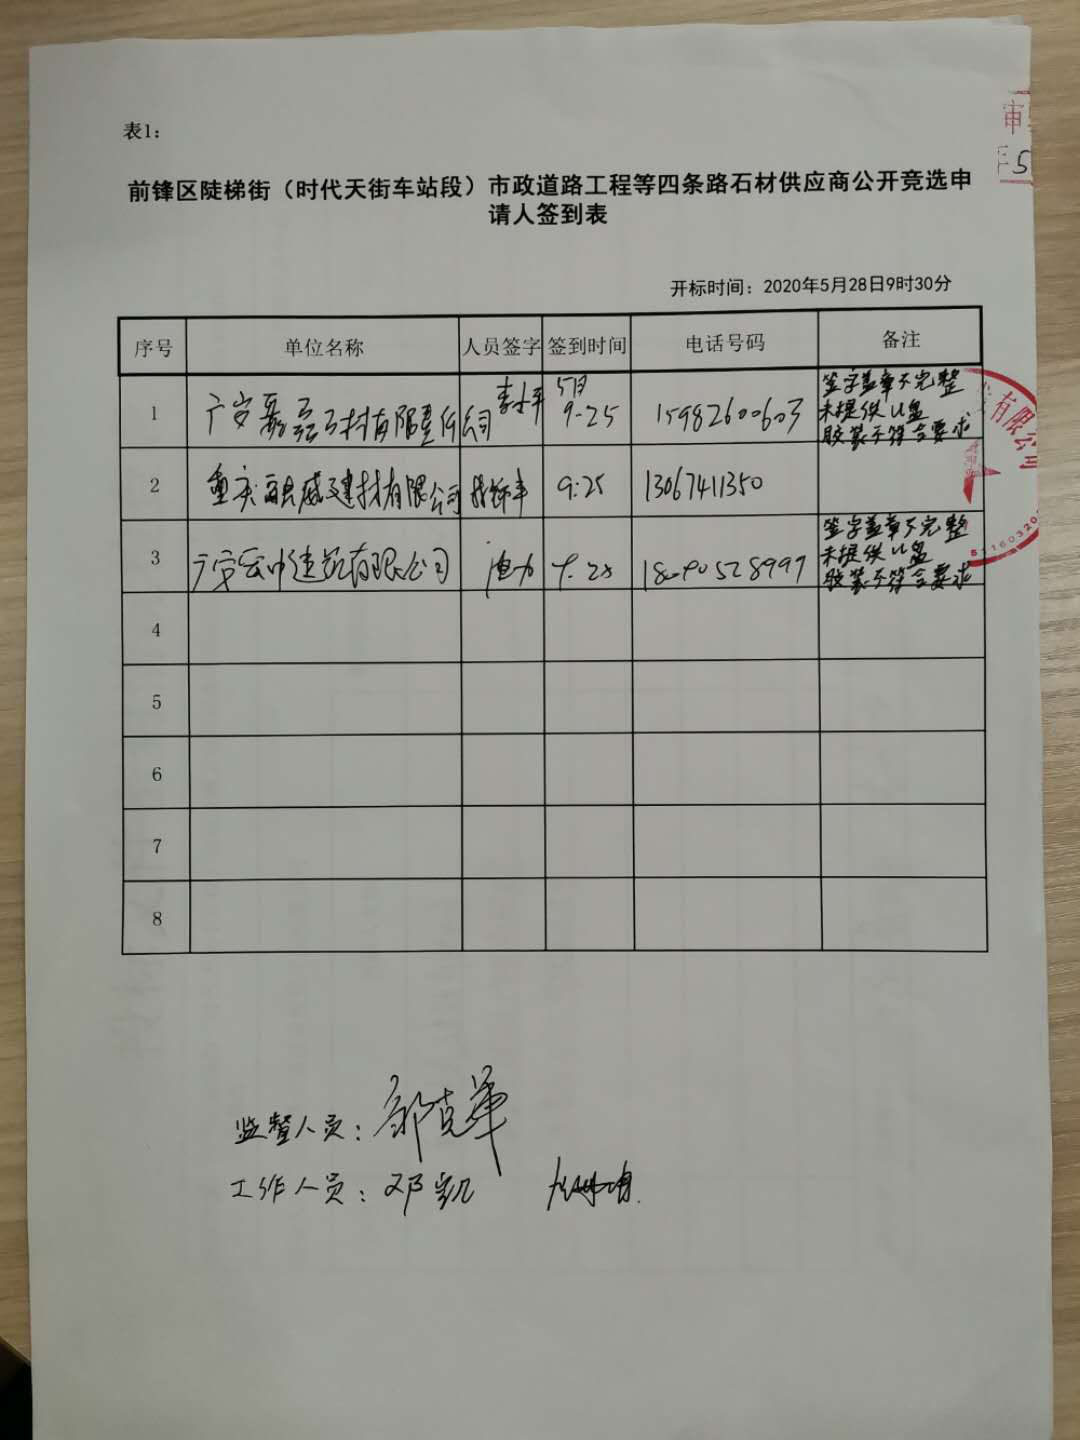 审
年5
表1：
前锋区陡梯街（时代天街车站段）市政道路工程等四条路石材供应商公开竞选申
请人签到表
开标时间：2020年5月28日9时30分
序号 单位名称 人员签字 签到时间 电话号码 备注
1 广安 石材有限责任公司 5月 9:25 15982600603 签字盖章不完整
未提供U盘
胶装不符合要求
有限公司
2 重庆 建材有限公司 9:25 13067411350
3 广安宏中建筑有限公司 签字盖章不完整
未提供U盘
胶装不符合要求
4
5
6
7
8
监督人员：
工作人员：邓凯